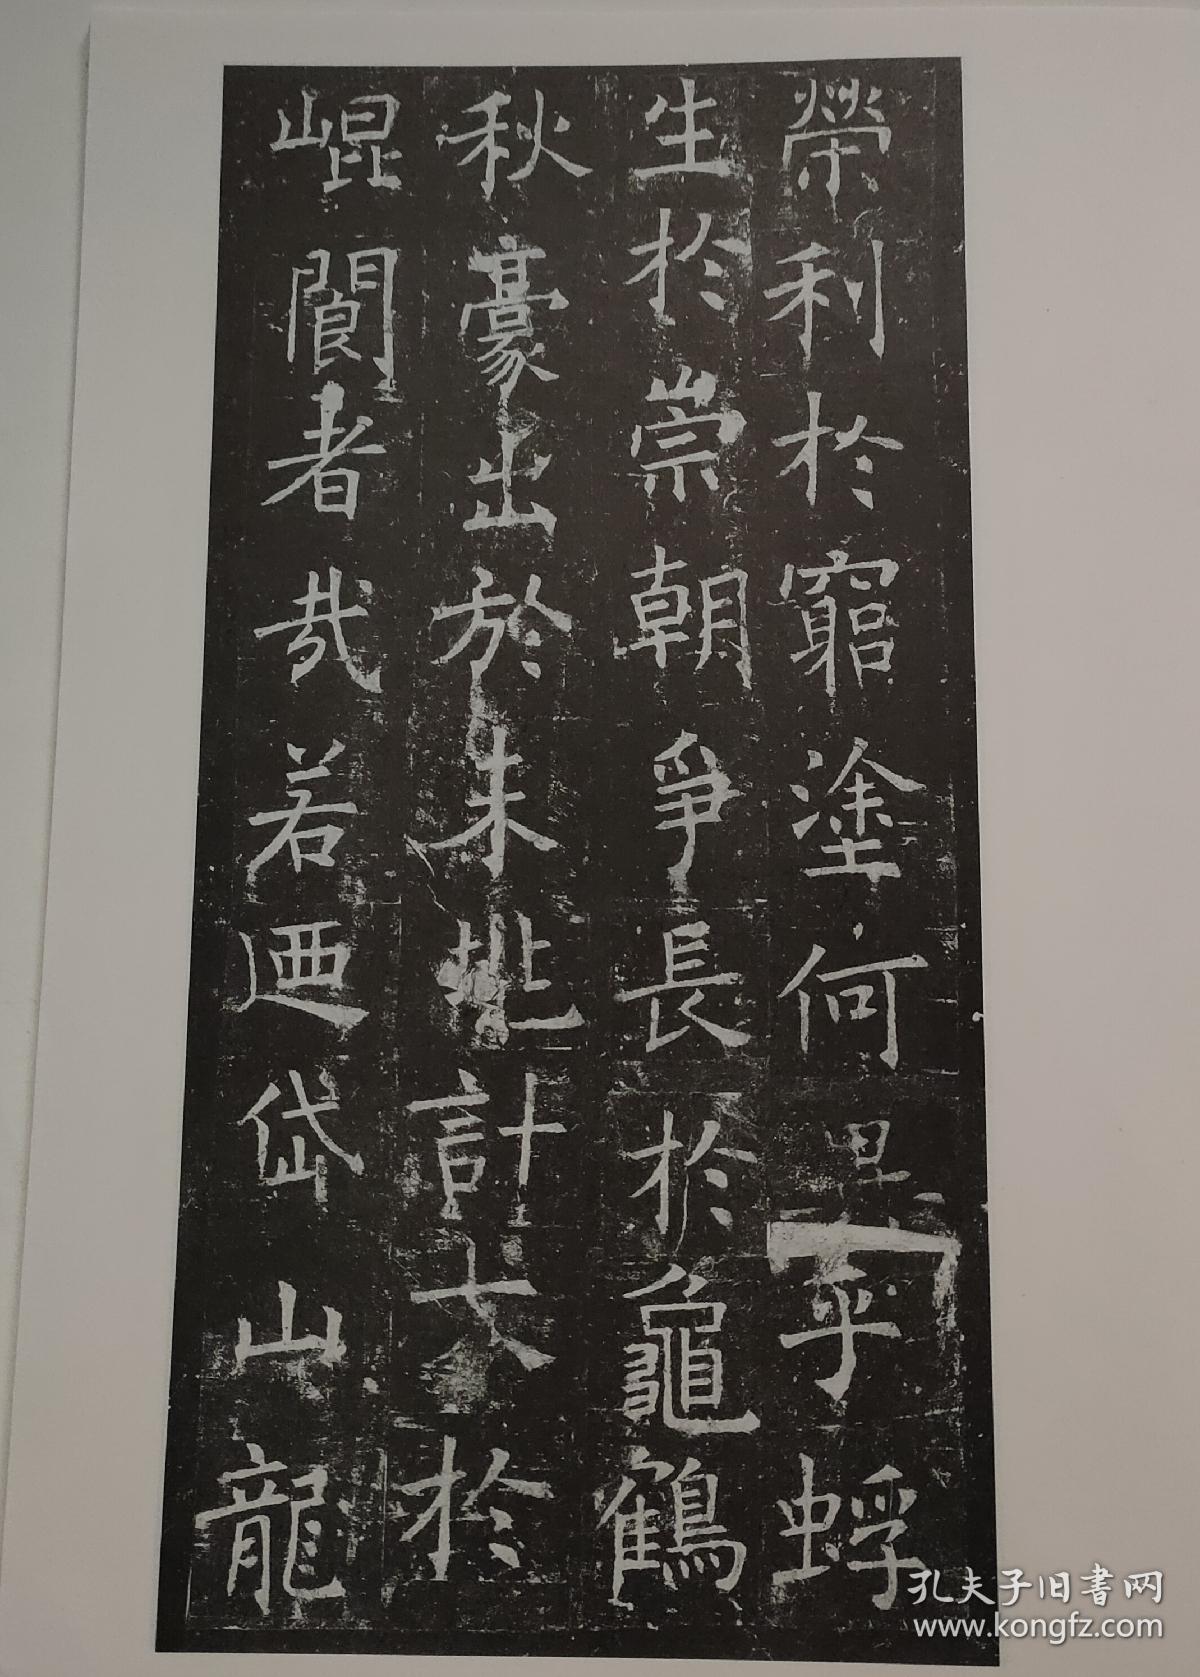 榮利於窮塗何異乎蜉
生於崇朝爭長於龜鶴
秋豪出於未兆計大於
崐閬者哉若迺岱山龍
孔夫子旧書网
www.kongfz.com